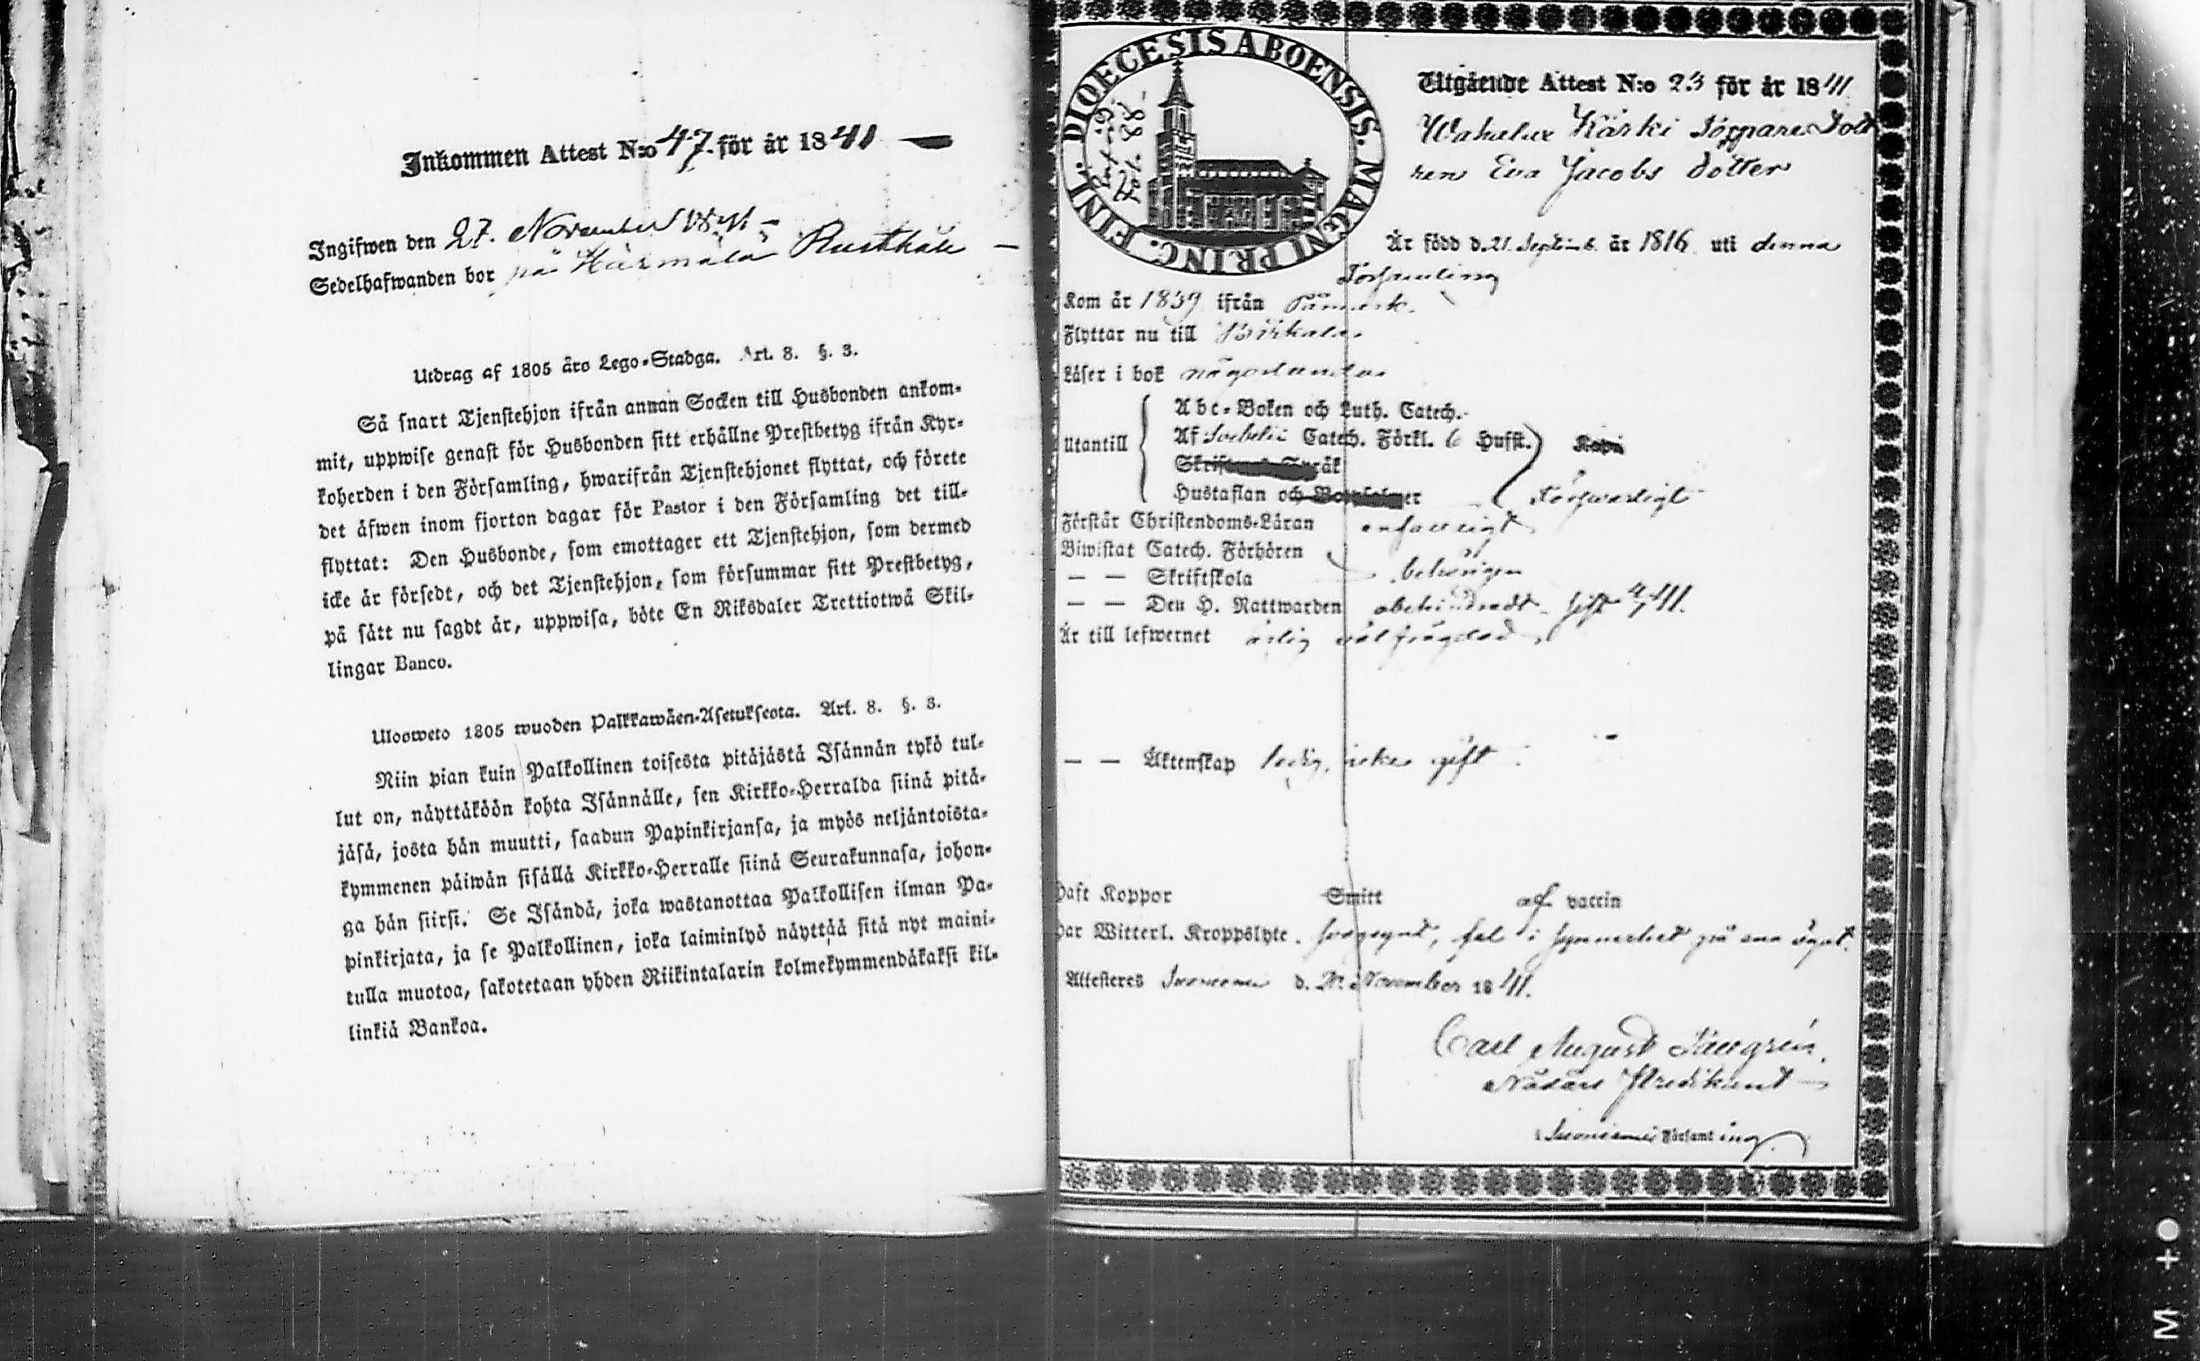 Inkommen Attest N:o 47. för år 1841
Ingifwen den 27. November 1841
Sedelhafwanden bor på Härmälä Rusthåll
Utdrag af 1805 års Lego-Stadga. Art. 8. §. 3.
Så snart Tjenstehjon ifrån annan Socken till Husbonden ankom-
mit, uppwise genast för Husbonden sitt erhållne Prestbetyg ifrån Kyr-
koherden i den Församling, hwarifrån Tjenstehjonet flyttat, och förete
det äfwen inom fjorton dagar för Pastor i den Församling det till-
flyttat: Den Husbonde, som emottager ett Tjenstehjon, som dermed
icke är försedt, och det Tjenstehjon, som försummar sitt Prestbetyg,
på sätt nu sagdt är, uppwisa, böte En Riksdaler Trettiotwå Skil-
lingar Banco.
Ulosweto 1805 wuoden Palkkawäen-Asetuksesta. Art. 8. §. 3.
Niin pian kuin Palkollinen toisesta pitäjästä Isännän tykö tul-
lut on, näyttäköön kohta Isännälle, sen Kirkko-Herralda siinä pitä-
jäsä, josta hän muutti, saadun Papinkirjansa, ja myös neljäntoista-
kymmenen päiwän sisällä Kirkko-Herralle siinä Seurakunnasa, johon-
ga hän siirsi. Se Isändä, joka wastanottaa Palkollisen ilman Pa-
pinkirjata, ja se Palkollinen, joka laiminlyö näyttää sitä nyt maini-
tulla muotoa, sakotetaan yhden Riikintalarin kolmekymmendäkaksi kil-
linkiä Bankoa.
DIOECESIS ABOENSIS. MAGNI PRINC. FINL.
Utgående Attest N:o 23 för år 1841
Kärki
Eva Jacobs dotter
Är född d. 21. Septemb. år 1816 uti denna
Församling
Kom år 1839 ifrån
Flyttar nu till Birkala
Läser i bok någorlunda
Utantill
Abc-Boken och Luth. Catech.
Af Svebelii Catech. Förkl. 6 Hufst.
Hustaflan och
Försvarligt
Förstår Christendoms-Läran enfaldigt
Biwistat Catech. Förhören
— — Skriftskola behörigen
— — Den H. Nattwarden obehindradt
Är till lefwernet ärlig välfrägdad
— — Äktenskap ledig, icke gift
Haft Koppor Smitt af vaccin
Har Witterl. Kroppslyte. svagsynt, fel i synnerhet på ena ögat.
Attesteres Suoniemi d. November 1841.
Carl August
Nådårs Predikant
Suoniemi Församling